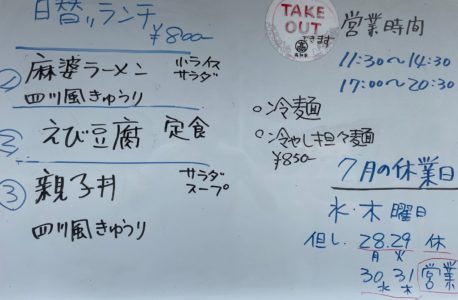 日替りランチ
¥800
① 麻婆ラーメン 小ライス サラダ
四川風きゅうり
② えび豆腐 定食
③ 親子丼 サラダ スープ
四川風きゅうり
TAKE
OUT
できます
○冷麺
○冷やし担々麺
¥850
営業時間
11:30〜14:30
17:00〜20:30
7月の休業日
水・木曜日
但し、28.29 休
月 火
30.31 営業
水 木